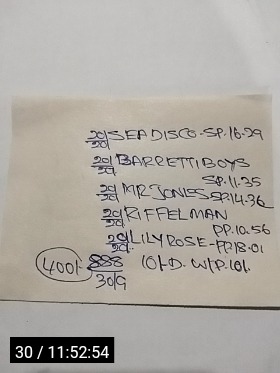 20/20 SEADISCO-SP.16.29
20/20 BARRETTIBOYS
SP.11.35
20/20 MR JONES SP.14.36
20/20 RIFFELMAN
PP.10.56
20/20 LILYROSE-PP.18.01
400/- 888 10/-D. W/P.10/.
30/9
30 / 11:52:54